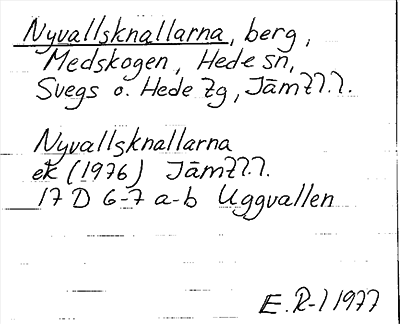 Nyvallsknallarna, berg,
Medskogen, Hede sn,
Svegs o. Hede tg, Jämtl.l.
Nyvallsknallarna
ek (1976) Jämtl.l.
17 D 6-7 a-b Uggvallen
E. R-l 1977